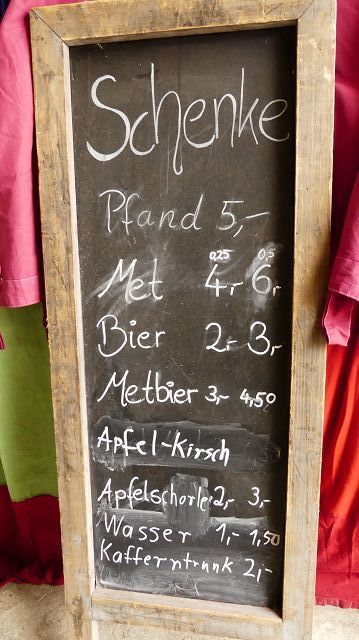 Schenke
Pfand 5,-
0,25 0,5
Met 4,- 6,-
Bier 2,- 3,-
Metbier 3,- 4,50
Apfel-Kirsch
Apfelschorle 2,- 3,-
Wasser 1,- 1,50
Kafferntrunk 2,-